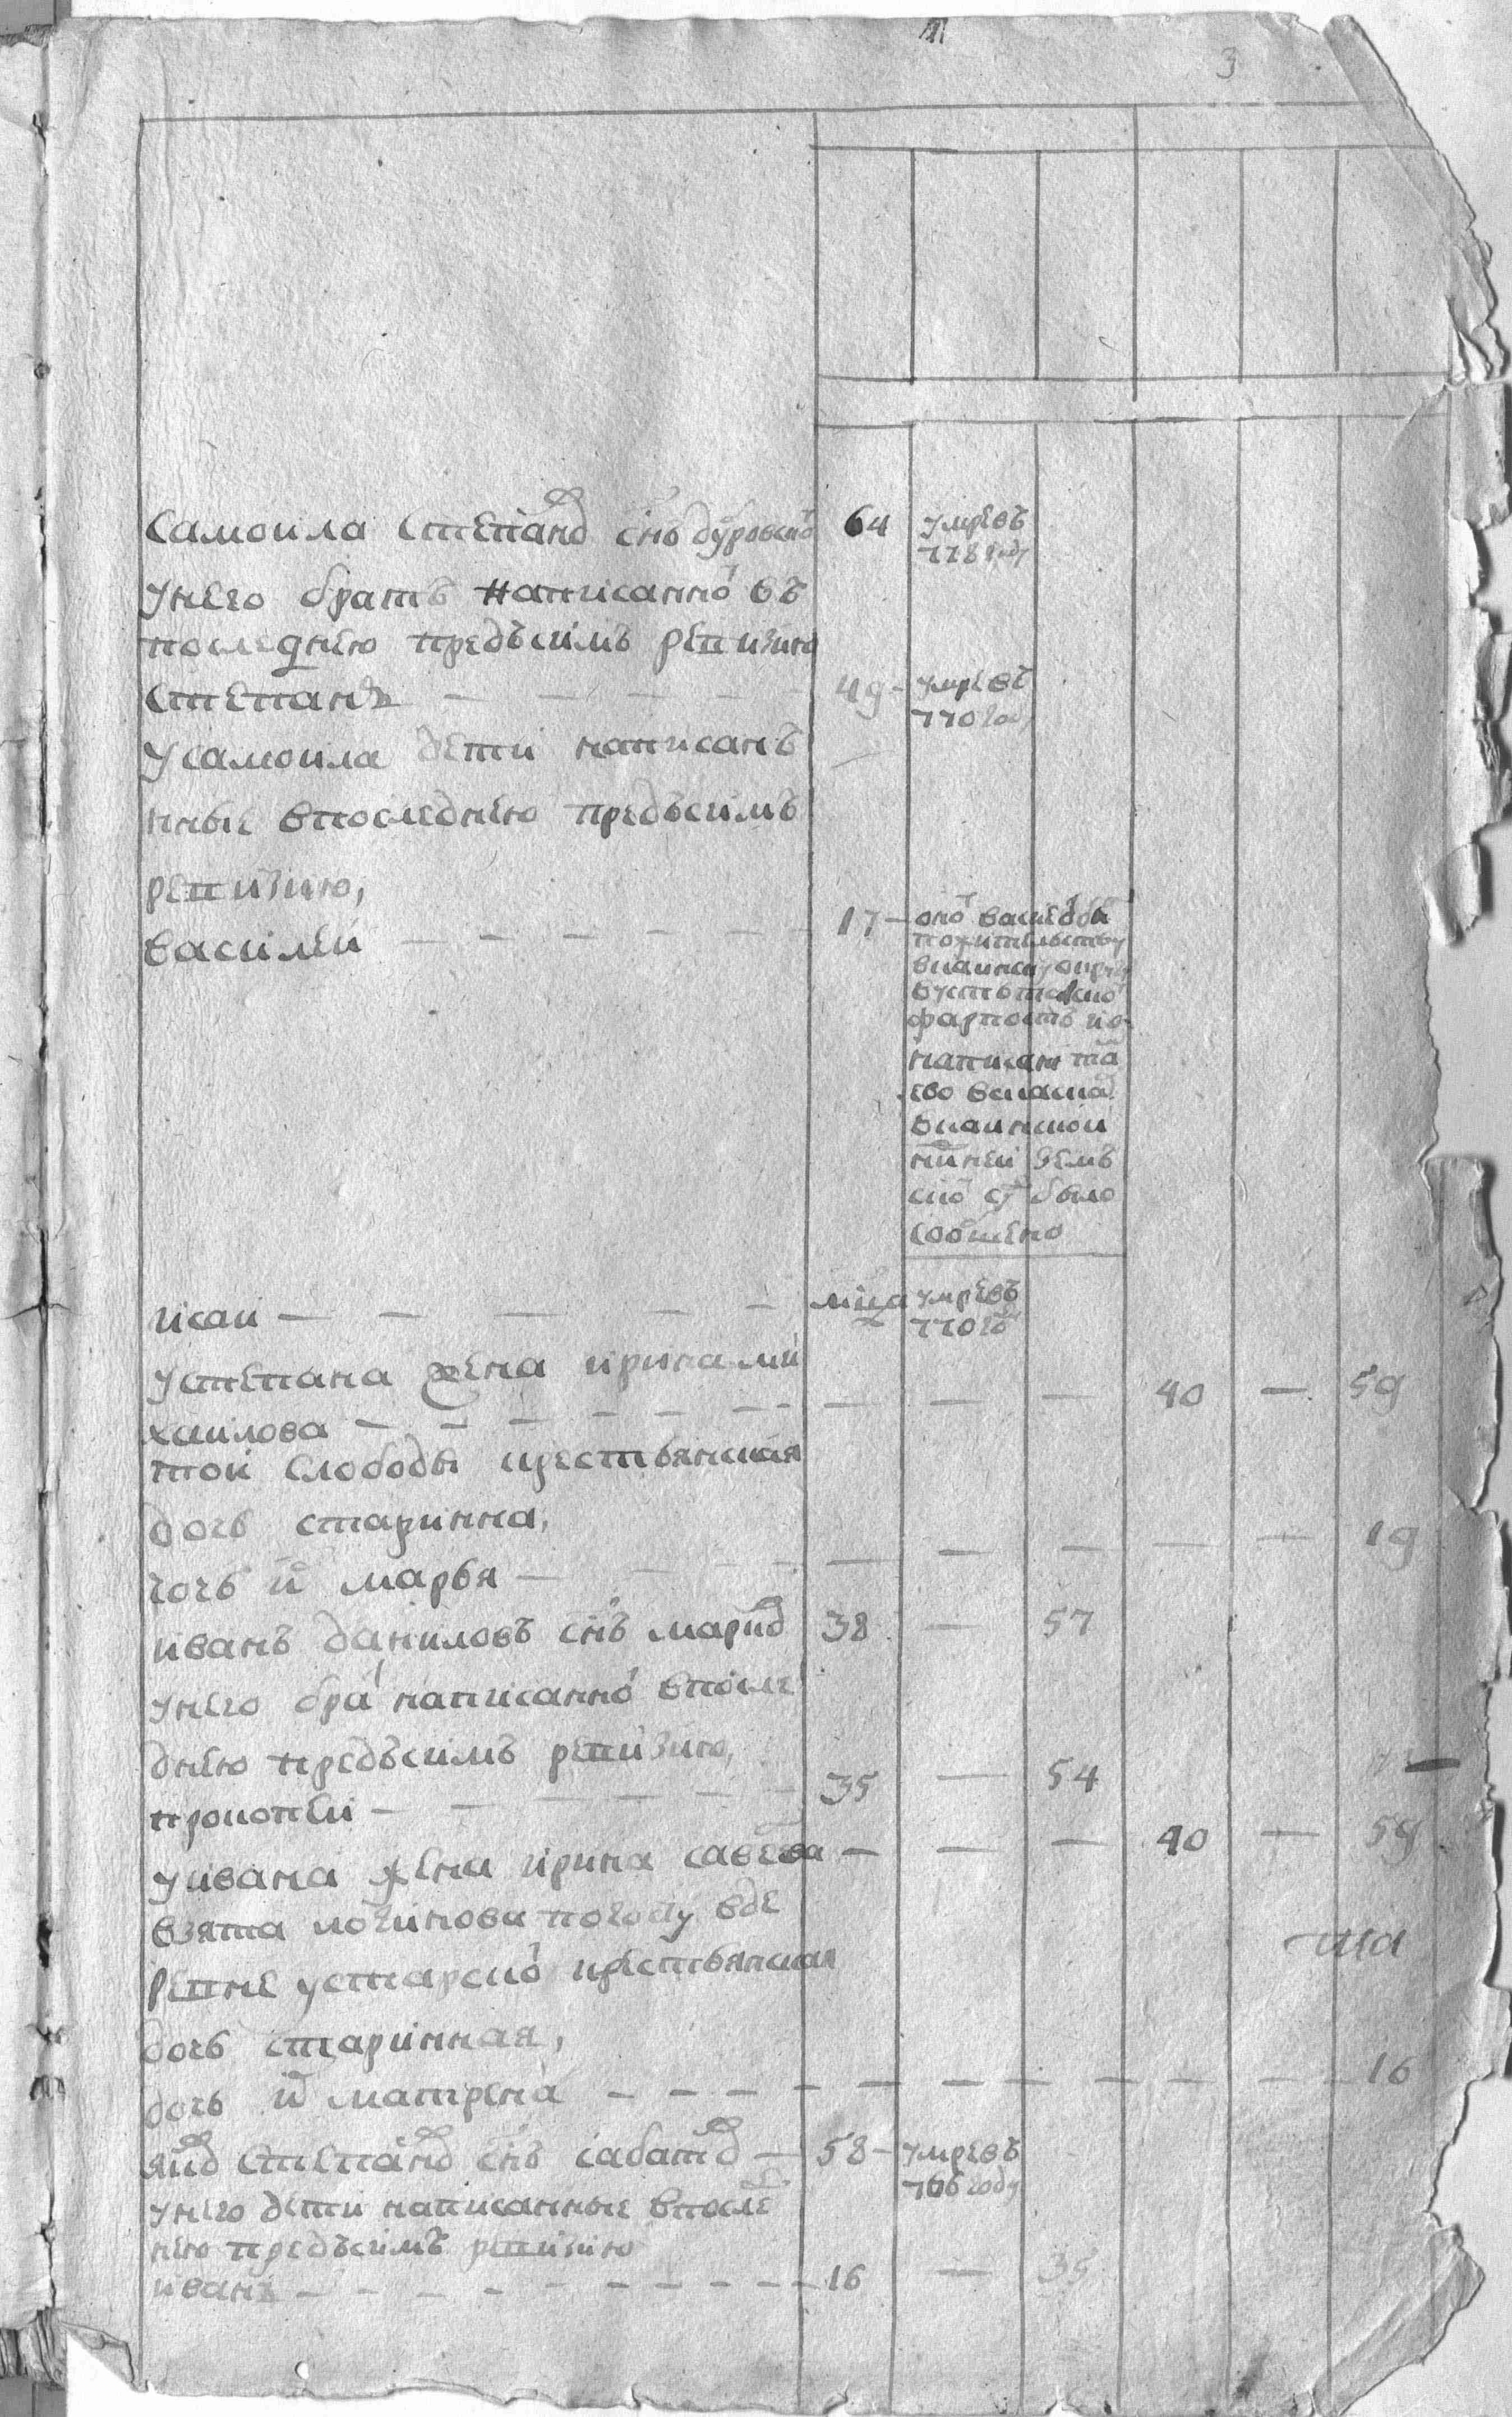 3
Самоила Степанов снъ дуровско 64 умревъ
778 году
унего братъ написанно въ
последнею предъсимъ ревизию
Степанъ — — — — — 49 - умревъ
770 году
Усамоила дети написанъ
нные впоследнею предъсимъ
ревизию,
василеи — — — — — — 17 — оно васиеви
пожительству
форпостъ
написан та
ево
нижнеиземъ
ско су было
сообщено
исаи — — — — — умревъ
770 го
устепана жена ирина ми
хаилова — — — — — — — — — 40 — 59
тои слободы крестьянская
дочь старинна,
дочь и марья — — — — — — — — 19
иванъ даниловъ снъ марко 38 — 57
унего бра написанно впосле
днею предъсимъ ревизию,
прокопеи — — — — — — 35 — 54
уивана жена ирина савева — — — 40 — 59
взята погосту вде
ревне крестьянская
дочь старинная,
дочь и матрена — — — — — — — — — — 16
яко степано снъ сабато — 58 - умревъ
766 году
унего дети написанные впосле
нею предъсимъ ревизию
иванъ — — — — — — — — — 16 — 35